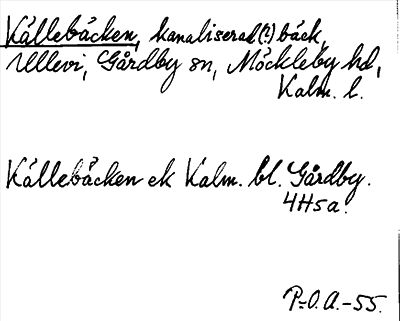 Källebäcken, kanaliserad(?) bäck,
Ullevi, Gårdby sn, Möckleby hd,
Kalm. l.
Källebäcken ek Kalm. bl. Gårdby.
4H5a.
P-O.A.-55.